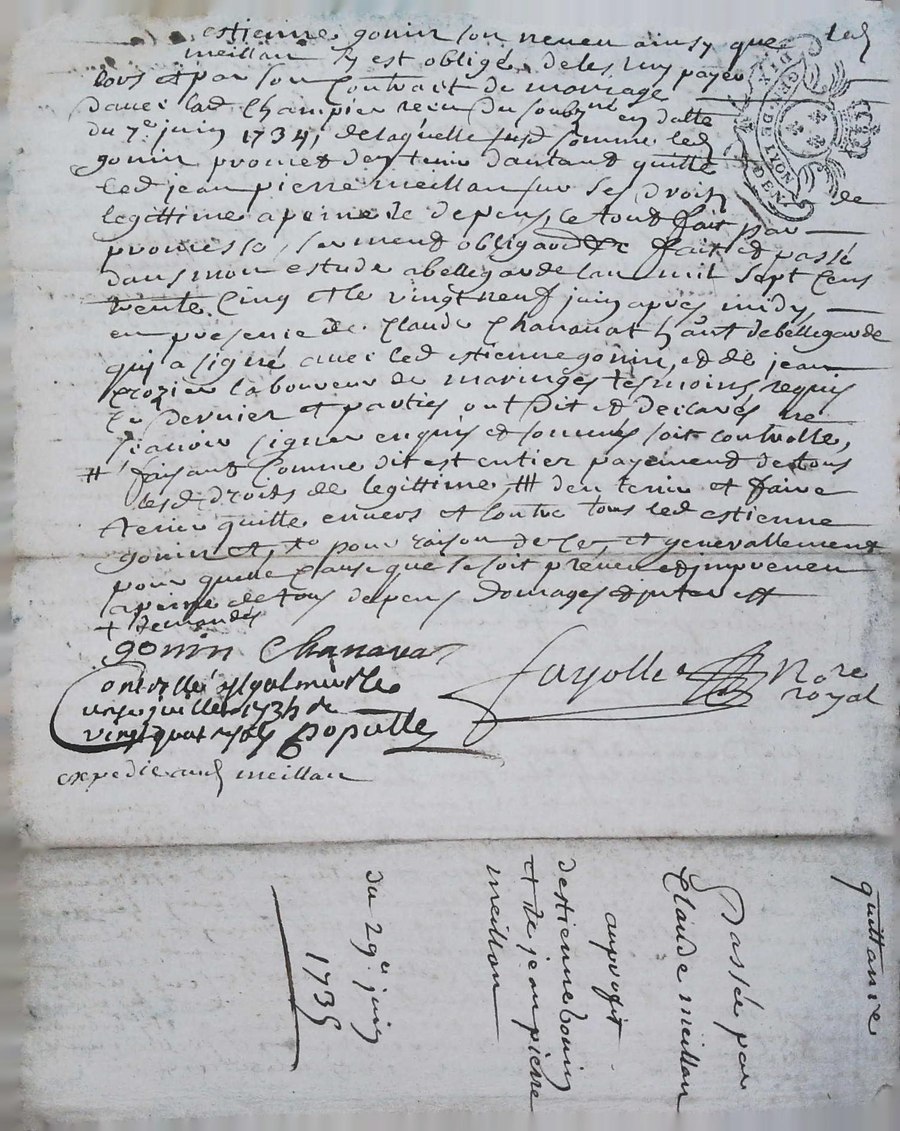 estienne gonin son neveu ainsy que led
meillan s'y est obligé de les luy payer
lors et par son Contrait de mariage
avec lad Champier receu du soubzné en datte
du 7e juin 1734, de laquelle susd somme led
gonin promet den tenir dautant quitte
led jean pierre meillan sur ses droits de
legittime a peine de depens, le tout fait par
promesse, serment obligaon &c fait et passé
dans mon estude a bellegarde lan mil sept cens
trente Cinq et le vingt neuf juin apres midy
en presence de Claude Chanauat hant de bellegarde
qui a signé avec led estienne gonin, et de jean
Crozier laboureur de maringes tesmoins, requis
Ce dernier et parties ont dit et declarés ne
scavoir signer enquis et sommés soit controllé,
# faisant comme dit est entier payement de tous
lesd droits de legittime, # den tenir et faire
tenir quitte envers et contre tous led estienne
gonin et, +o pour raison de ce, et generallement
pour quelle Cause que ce soit preveu et impreveu
a peine de tous depens domages et interest
+ demandes
gonin Chanava
fayolle Nore
royal
Controllé a st galmier le
unze juillet 1735 R
vingt quatre sols Popule
expedié aud meillan
GNER DE LYON
DIX DEN
quittance
Passée par
Claude meillan
au profit
destienne gonin
et de jean pierre
meillan
du 29e juin
1735